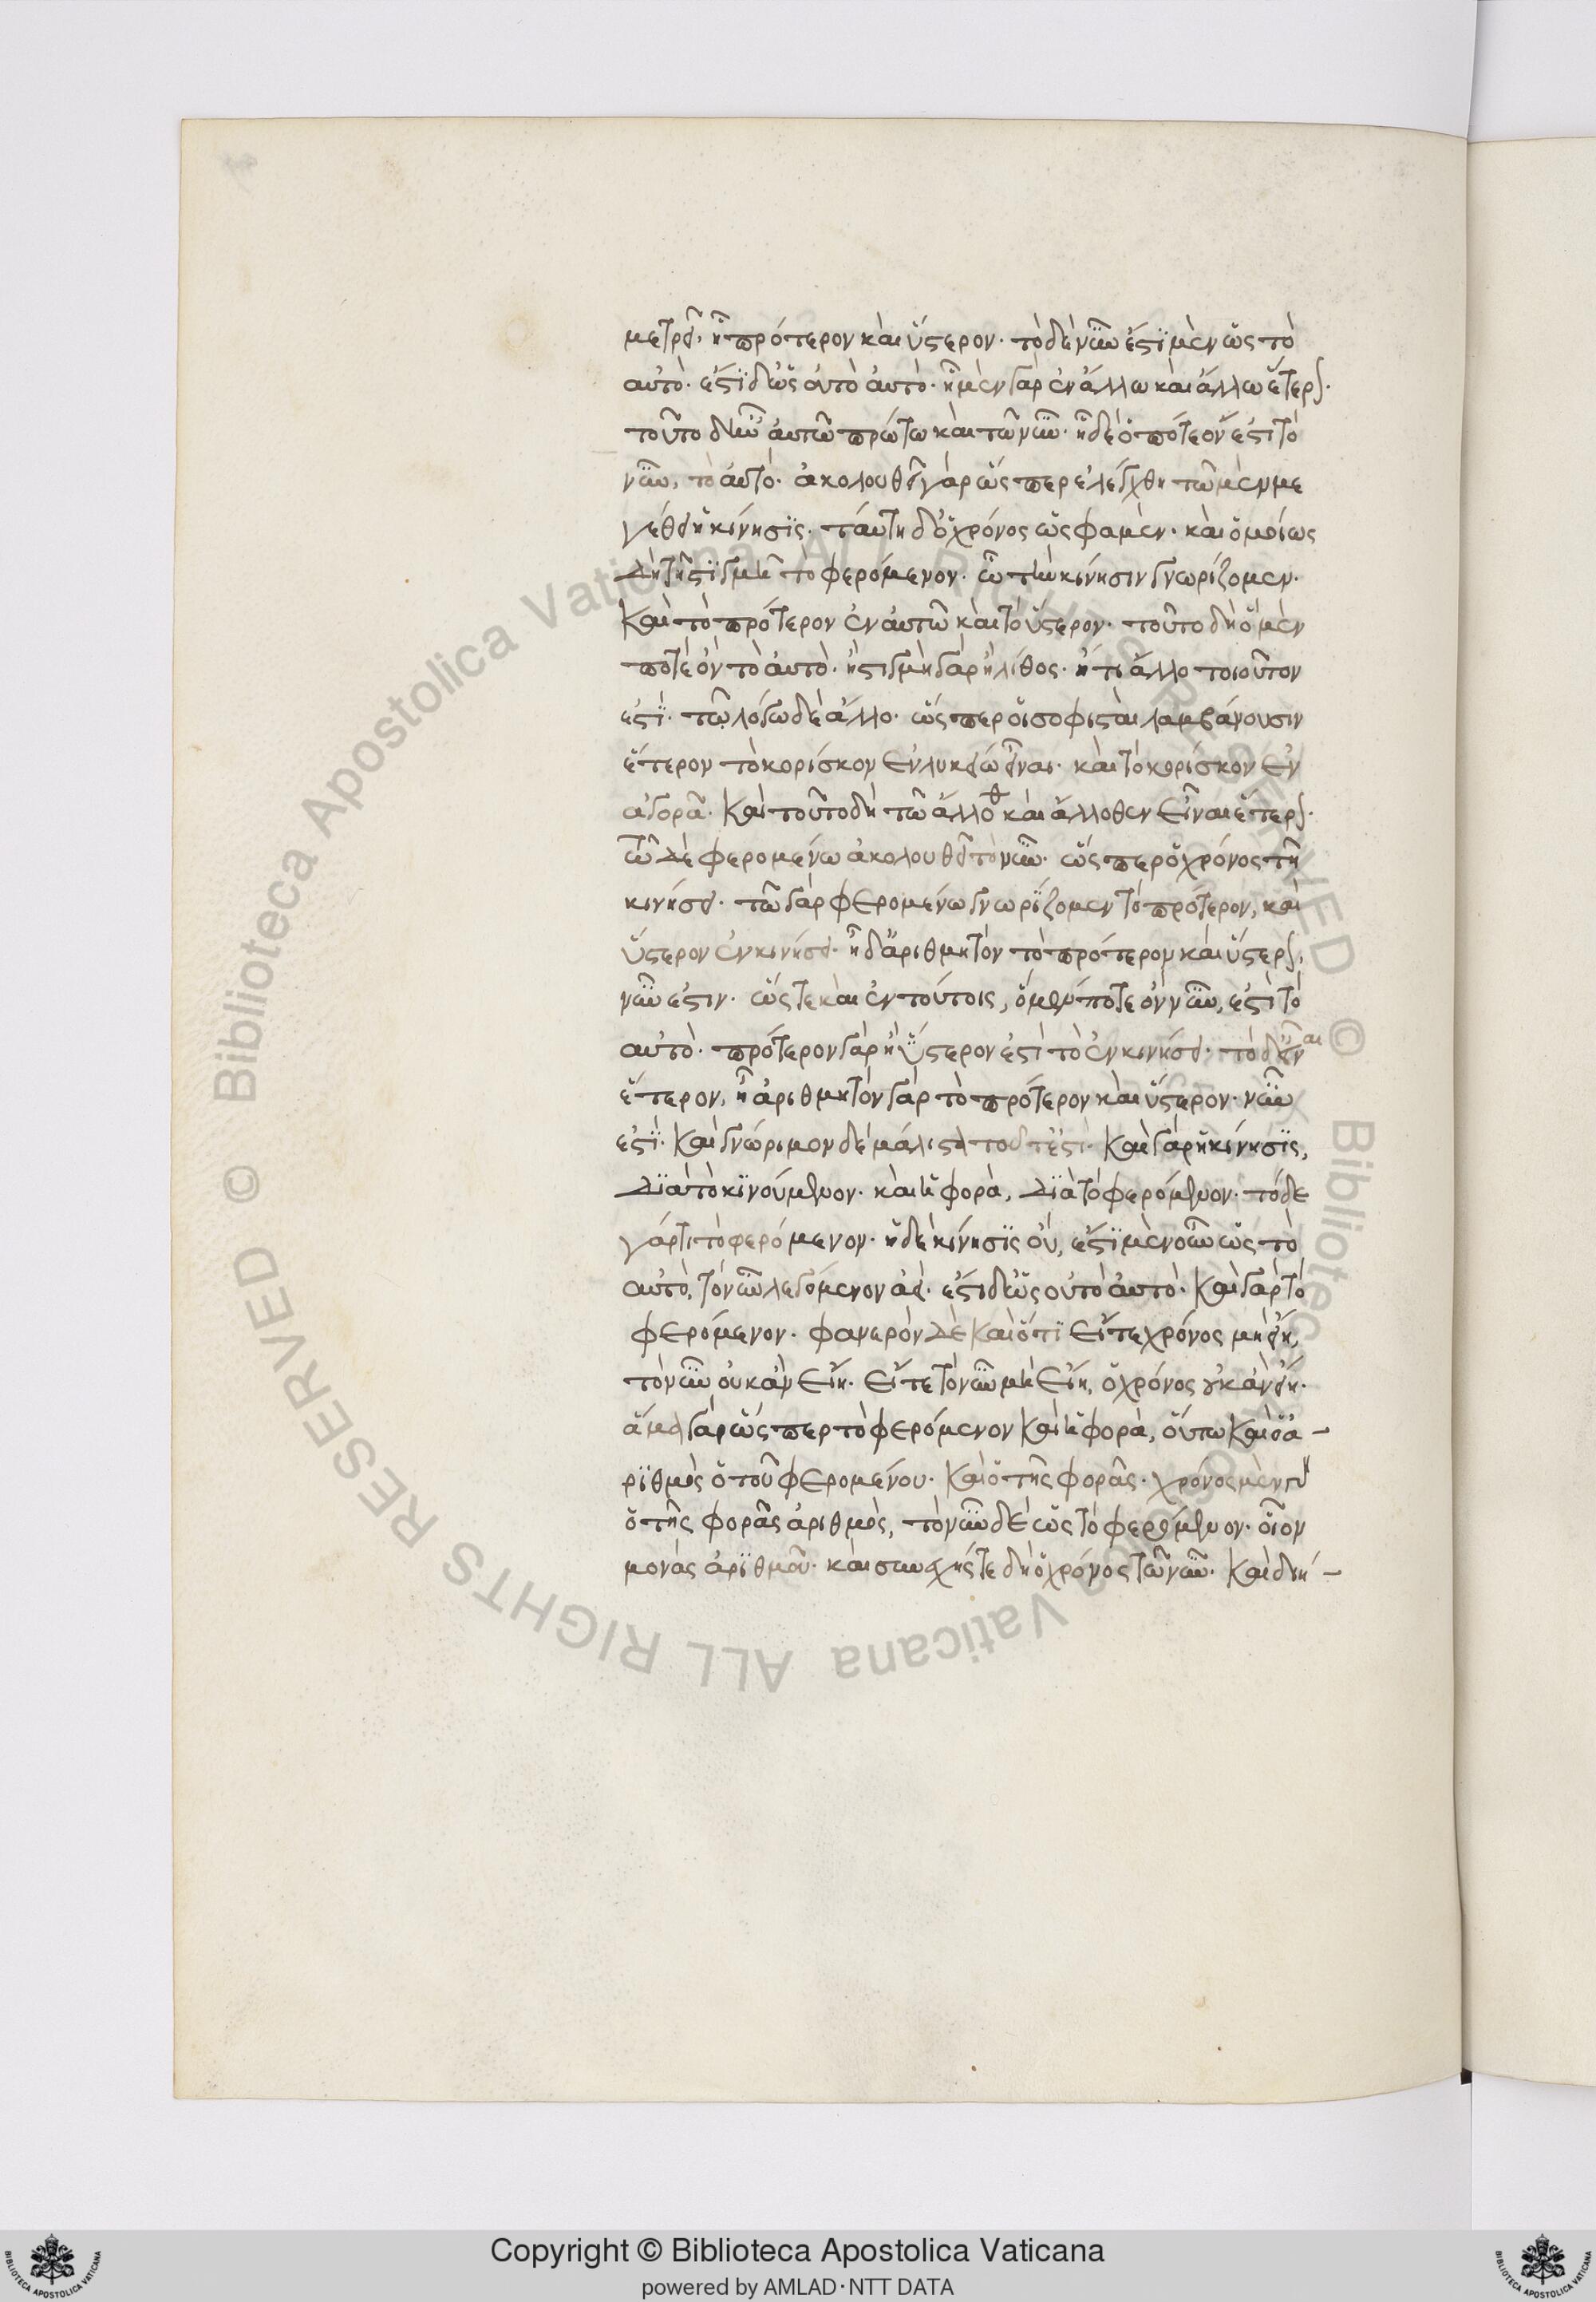 μετρεῖ, ἧ πρότερον καὶ ὕστερον· τὸ δὲ νῦν ἔστι μὲν ὡς τὸ
αὐτό· ἔστι δ' ὡς οὐ τὸ αὐτό· ἧ μὲν γὰρ ἐν ἄλλω καὶ ἄλλω ἕτερον·
τοῦτο δ' ἦν αὐτῶ πρώτω καὶ τῶ νῦν· ἧ δὲ ὅ ποτε ὄν ἐστι τὸ
νῦν, τὸ αὐτό· ἀκολουθεῖ γὰρ ὥσπερ ἐλέχθη τῶ μὲν με
γέθει ἡ κίνησις· ταύτη δ' ὁ χρόνος ὥς φαμεν· καὶ ὁμοίως
δὴ τῆ στιγμῆ τὸ φερόμενον· ὧ τὴν κίνησιν γνωρίζομεν·
καὶ τὸ πρότερον ἐν αὐτῶ καὶ τὸ ὕστερον· τοῦτο δὴ ὃ μέν
ποτε ὂν τὸ αὐτό· ἢ στιγμὴ γὰρ ἢ λίθος· ἤ τι ἄλλο τοιοῦτον
ἐστί· τῶ λόγω δὲ ἄλλο· ὥσπερ οἱ σοφισταὶ λαμβάνουσιν
ἕτερον τὸ κορίσκον ἐν λυκείω εἶναι· καὶ τὸ κορίσκον ἐν
ἀγορᾶ· καὶ τοῦτο δὴ τῶ ἄλλοθι καὶ ἄλλοθεν εἶναι ἕτερον·
τῶ δὲ φερομένω ἀκολουθεῖ τὸ νῦν· ὥσπερ ὁ χρόνος τῆ
κινήσει· τῶ γὰρ φερομένω γνωρίζομεν τὸ πρότερον, καὶ
ὕστερον ἐν κινήσει· ἧ δ' ἀριθμητὸν τὸ πρότερον καὶ ὕστερον,
νῦν ἐστιν· ὥστε καὶ ἐν τούτοις, ὃ μέν ποτε ὂν νῦν, ἐστὶ τὸ
αὐτό· πρότερον γὰρ ἢ ὕστερον ἐστὶ τὸ ἐν κινήσει· τὸ δ' εἶναι
ἕτερον, ἧ ἀριθμητὸν γὰρ τὸ πρότερον καὶ ὕστερον· νῦν
ἐστί· καὶ γνώριμον δὲ μάλιστα τοῦτ' ἐστὶ· καὶ γὰρ ἡ κίνησις,
διὰ τὸ κινούμενον· καὶ ἡ φορὰ, διὰ τὸ φερόμενον· τόδε
γάρ τι τὸ φερόμενον· ἡ δὲ κίνησις οὔ, ἔστι μὲν οὖν ὡς τὸ
αὐτὸ, τὸ νῦν λεγόμενον ἀεὶ· ἔστι δ' ὡς οὐ τὸ αὐτό· καὶ γὰρ τὸ
φερόμενον· φανερὸν δὲ καὶ ὅτι εἴτε χρόνος μὴ εἴη,
τὸ νῦν οὐκ ἂν εἴη· εἴτε τὸ νῦν μὴ εἴη, ὁ χρόνος οὐκ ἂν εἴη·
ἅμα γὰρ ὥσπερ τὸ φερόμενον καὶ ἡ φορὰ, οὕτω καὶ ὁ ἀ-
ριθμὸς ὁ τοῦ φερομένου· καὶ ὁ τῆς φορᾶς· χρόνος μὲν γὰρ
ὁ τῆς φορᾶς ἀριθμὸς, τὸ νῦν δὲ ὡς τὸ φερόμενον· οἷον
μονὰς ἀριθμοῦ· καὶ συνεχής τε δὴ ὁ χρόνος τῶ νῦν· καὶ διή-
Copyright © Biblioteca Apostolica Vaticana
powered by AMLAD·NTT DATA